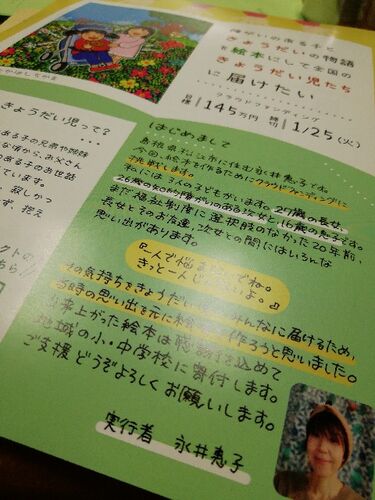 障がいのある子と
きょうだいの物語
を絵本にして全国の
きょうだい児たち
に届けたい
クラウドファンディング
目標 145万円 締切 1/25(火)
きょうだい児って?
ある子の兄弟や姉妹
な頃から、お父さん
のある子のお世話
ています。
、寂しかっ
ず、控え
クトの
ちら//
はじめまして
島根県松江市に住む永井恵子です。
今回、絵本を作るためにクラウドファンディング
に挑戦します。
私には3人の子どもがいます。27歳の長女、
26歳の知的障がいのある次女と、16歳の息子です。
まだ福祉制度に選択肢のなかった20年前、
長女とそのお友達、次女との間にはいろんな
思い出があります。
『一人で悩まないでね。
きっと一人じゃないよ。』
その気持ちをきょうだい みんなに届けるため、
当時の思い出を元に絵 作ろうと思いました。
出来上がった絵本は 込めて
地域の小・中学校に寄付します。
ご支援どうぞよろしくお願いします。
実行者 永井惠子